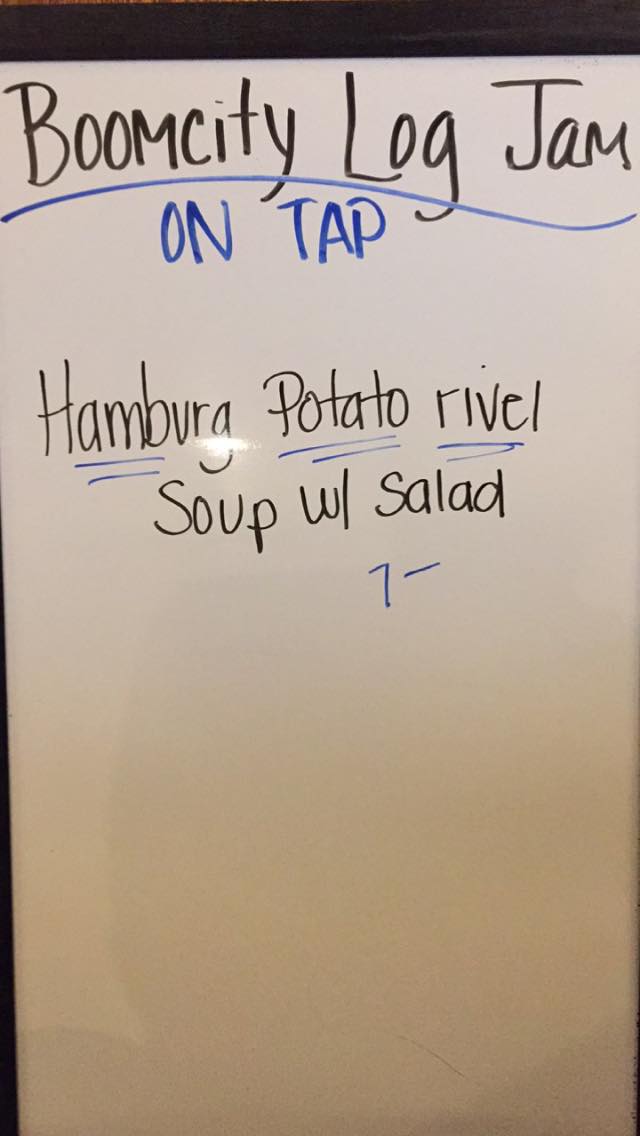 Boomcity Log Jam
ON TAP
Hamburg Potato rivel
Soup w/ Salad
7-